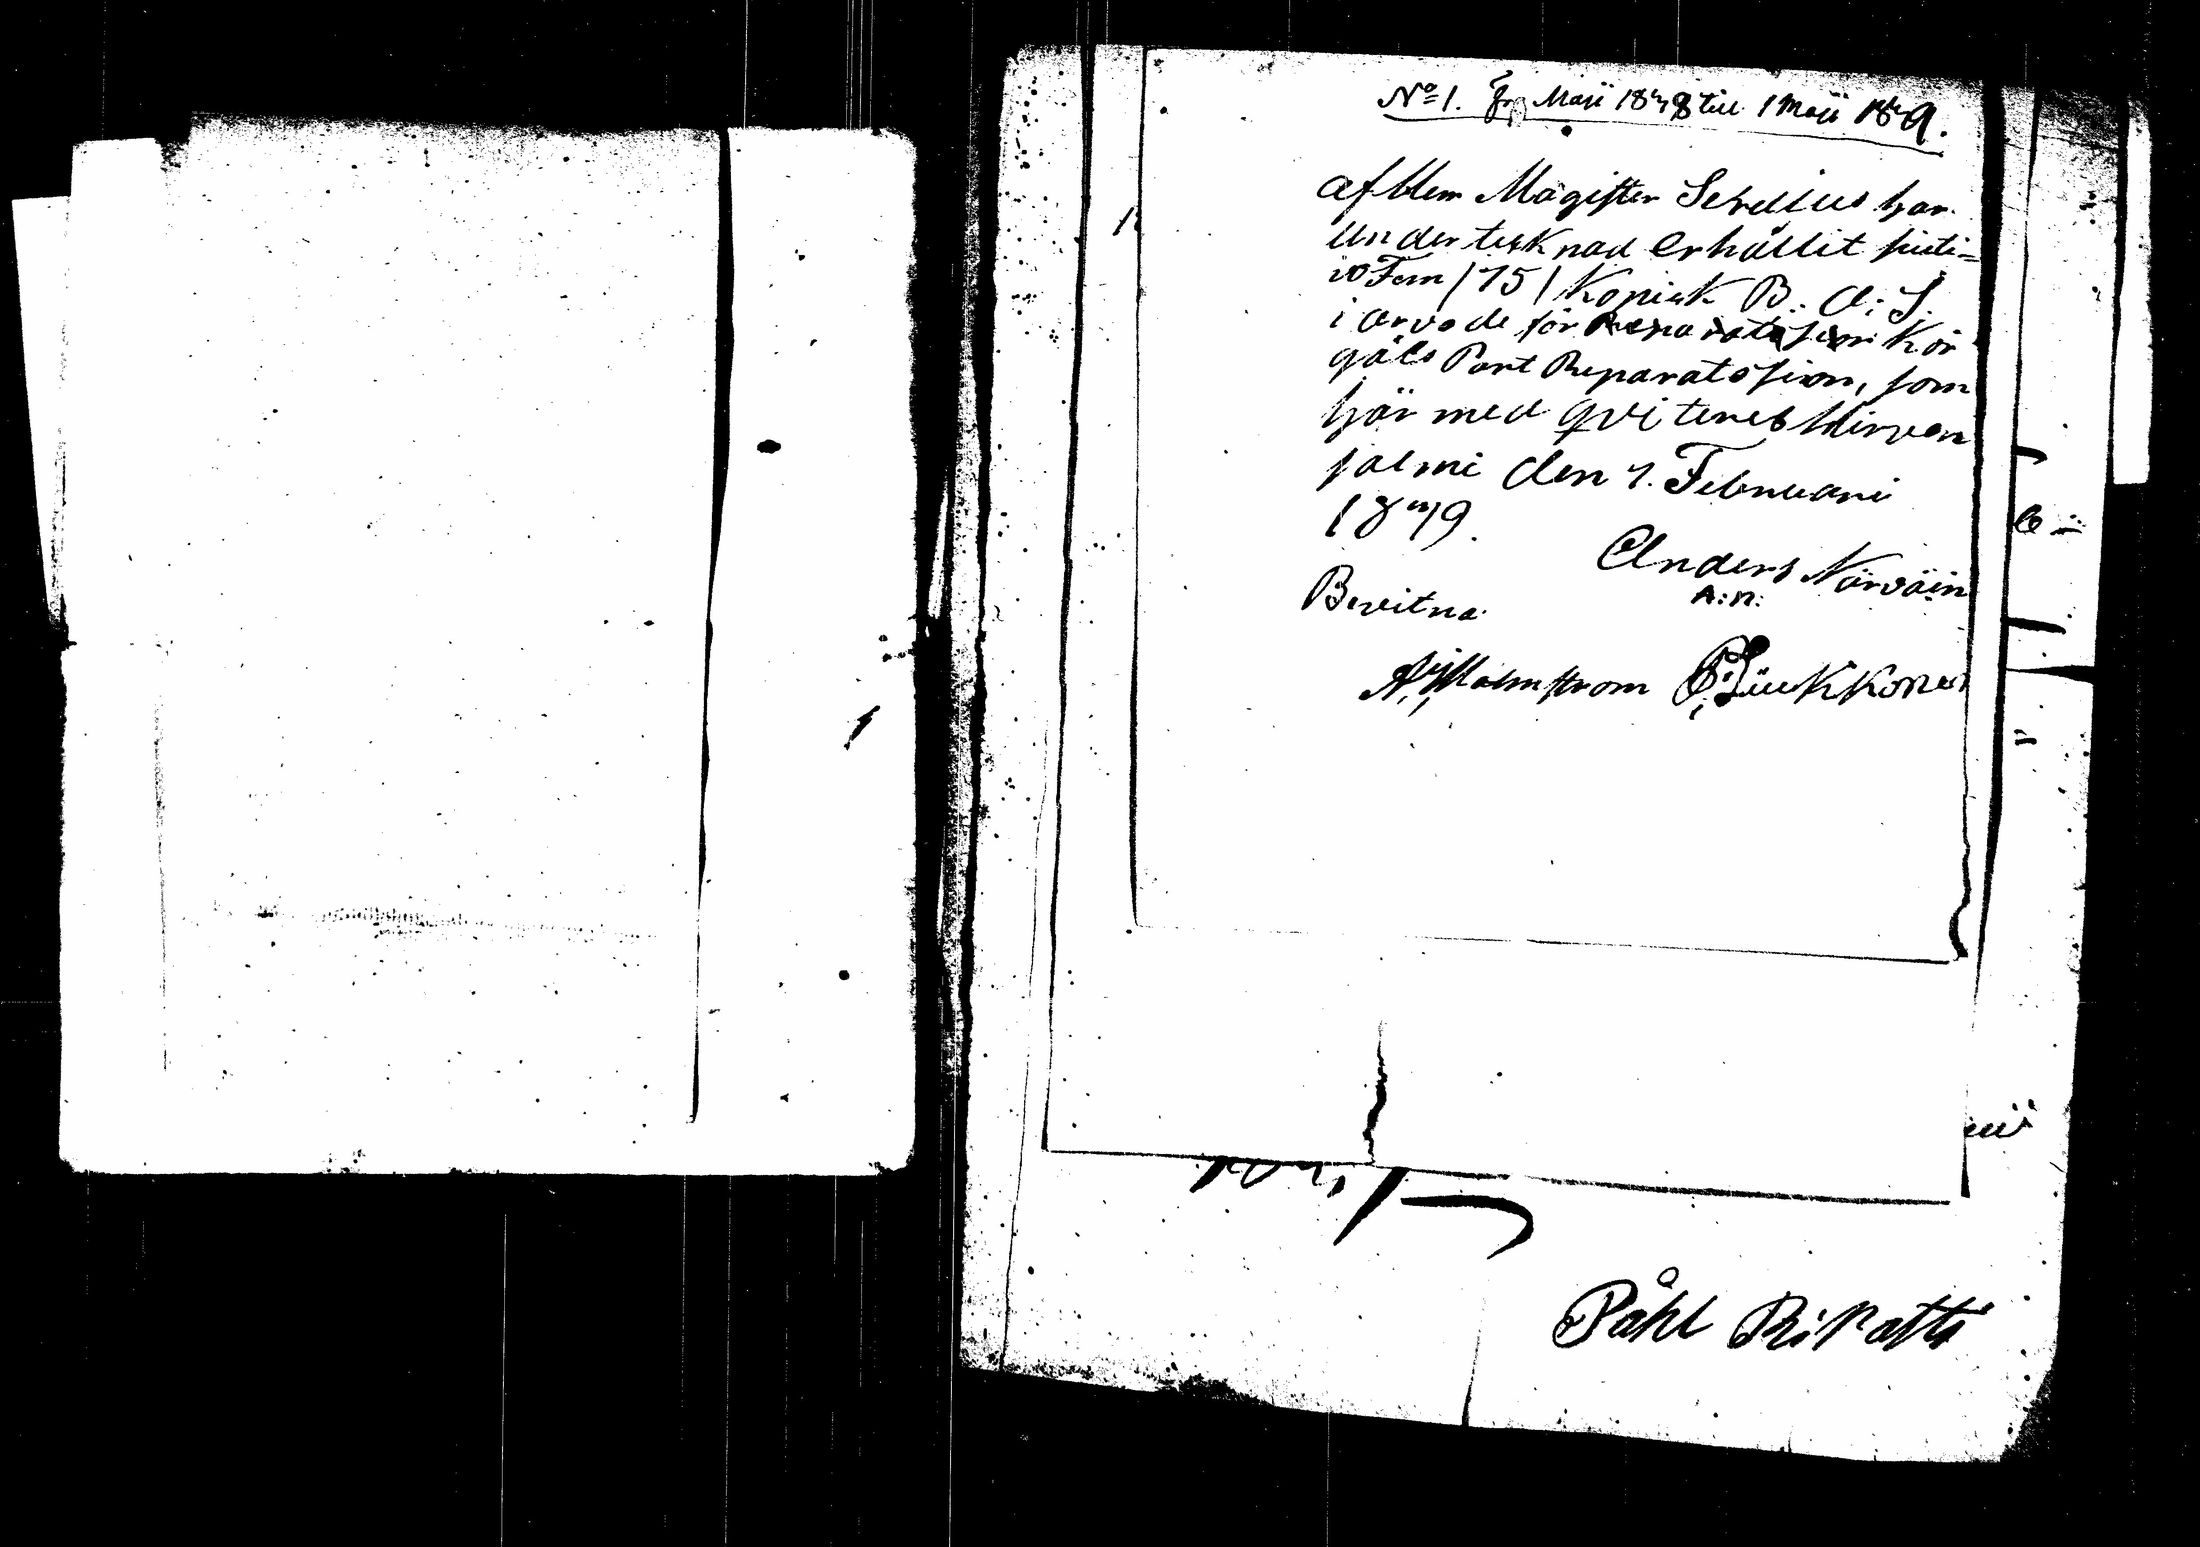 No 1. Fr. Maii 1848 till 1 Maii 1849.
af Herr Magister Serelius har
undertecknad erhållit siuti=
io Fem /75/ Kopiek B: A: S.
i arvode för Reparatsion Kör
gåls Port Reparatsion, som
här med qviteres Hirven
salmi den 7. Februari
1849.
Anders Närväin
A: n:
Bevitna
A, Malmstrom P, Liukkonen
Påhl Ripatti